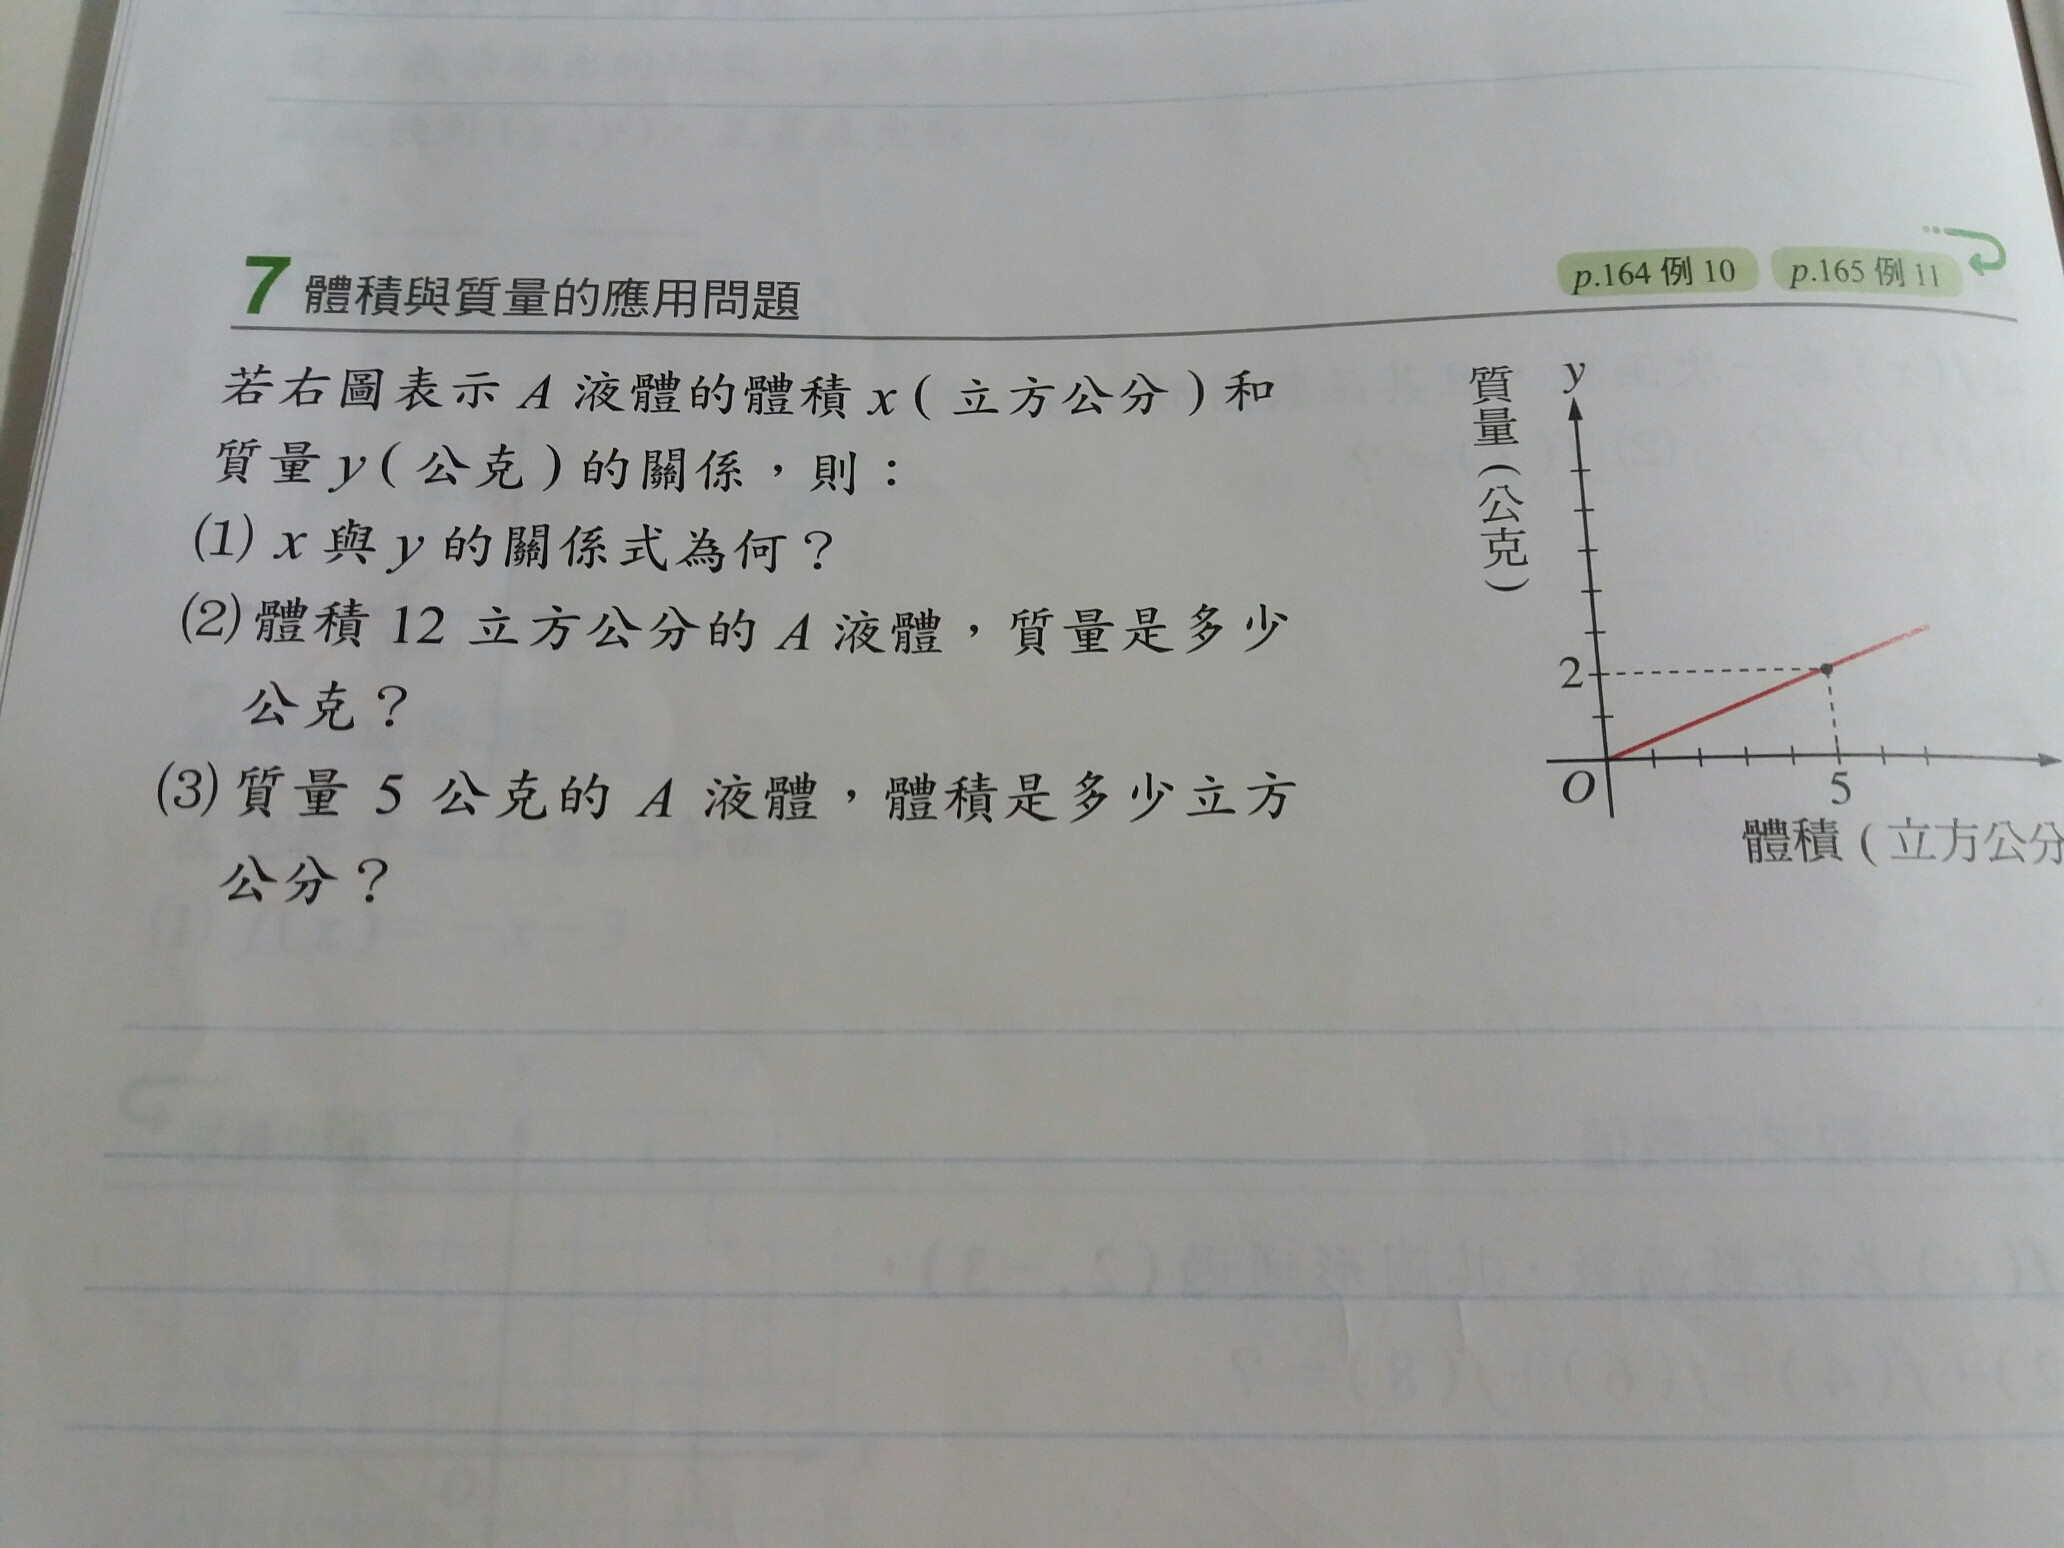 7 體積與質量的應用問題
p.164 例 10
p.165 例 11
若右圖表示 A 液體的體積 x ( 立方公分 ) 和
質量 y ( 公克 ) 的關係，則：
(1) x 與 y 的關係式為何？
(2) 體積 12 立方公分的 A 液體，質量是多少
公克？
(3) 質量 5 公克的 A 液體，體積是多少立方
公分？
質量(公克)
y
2
O
5
體積 ( 立方公分